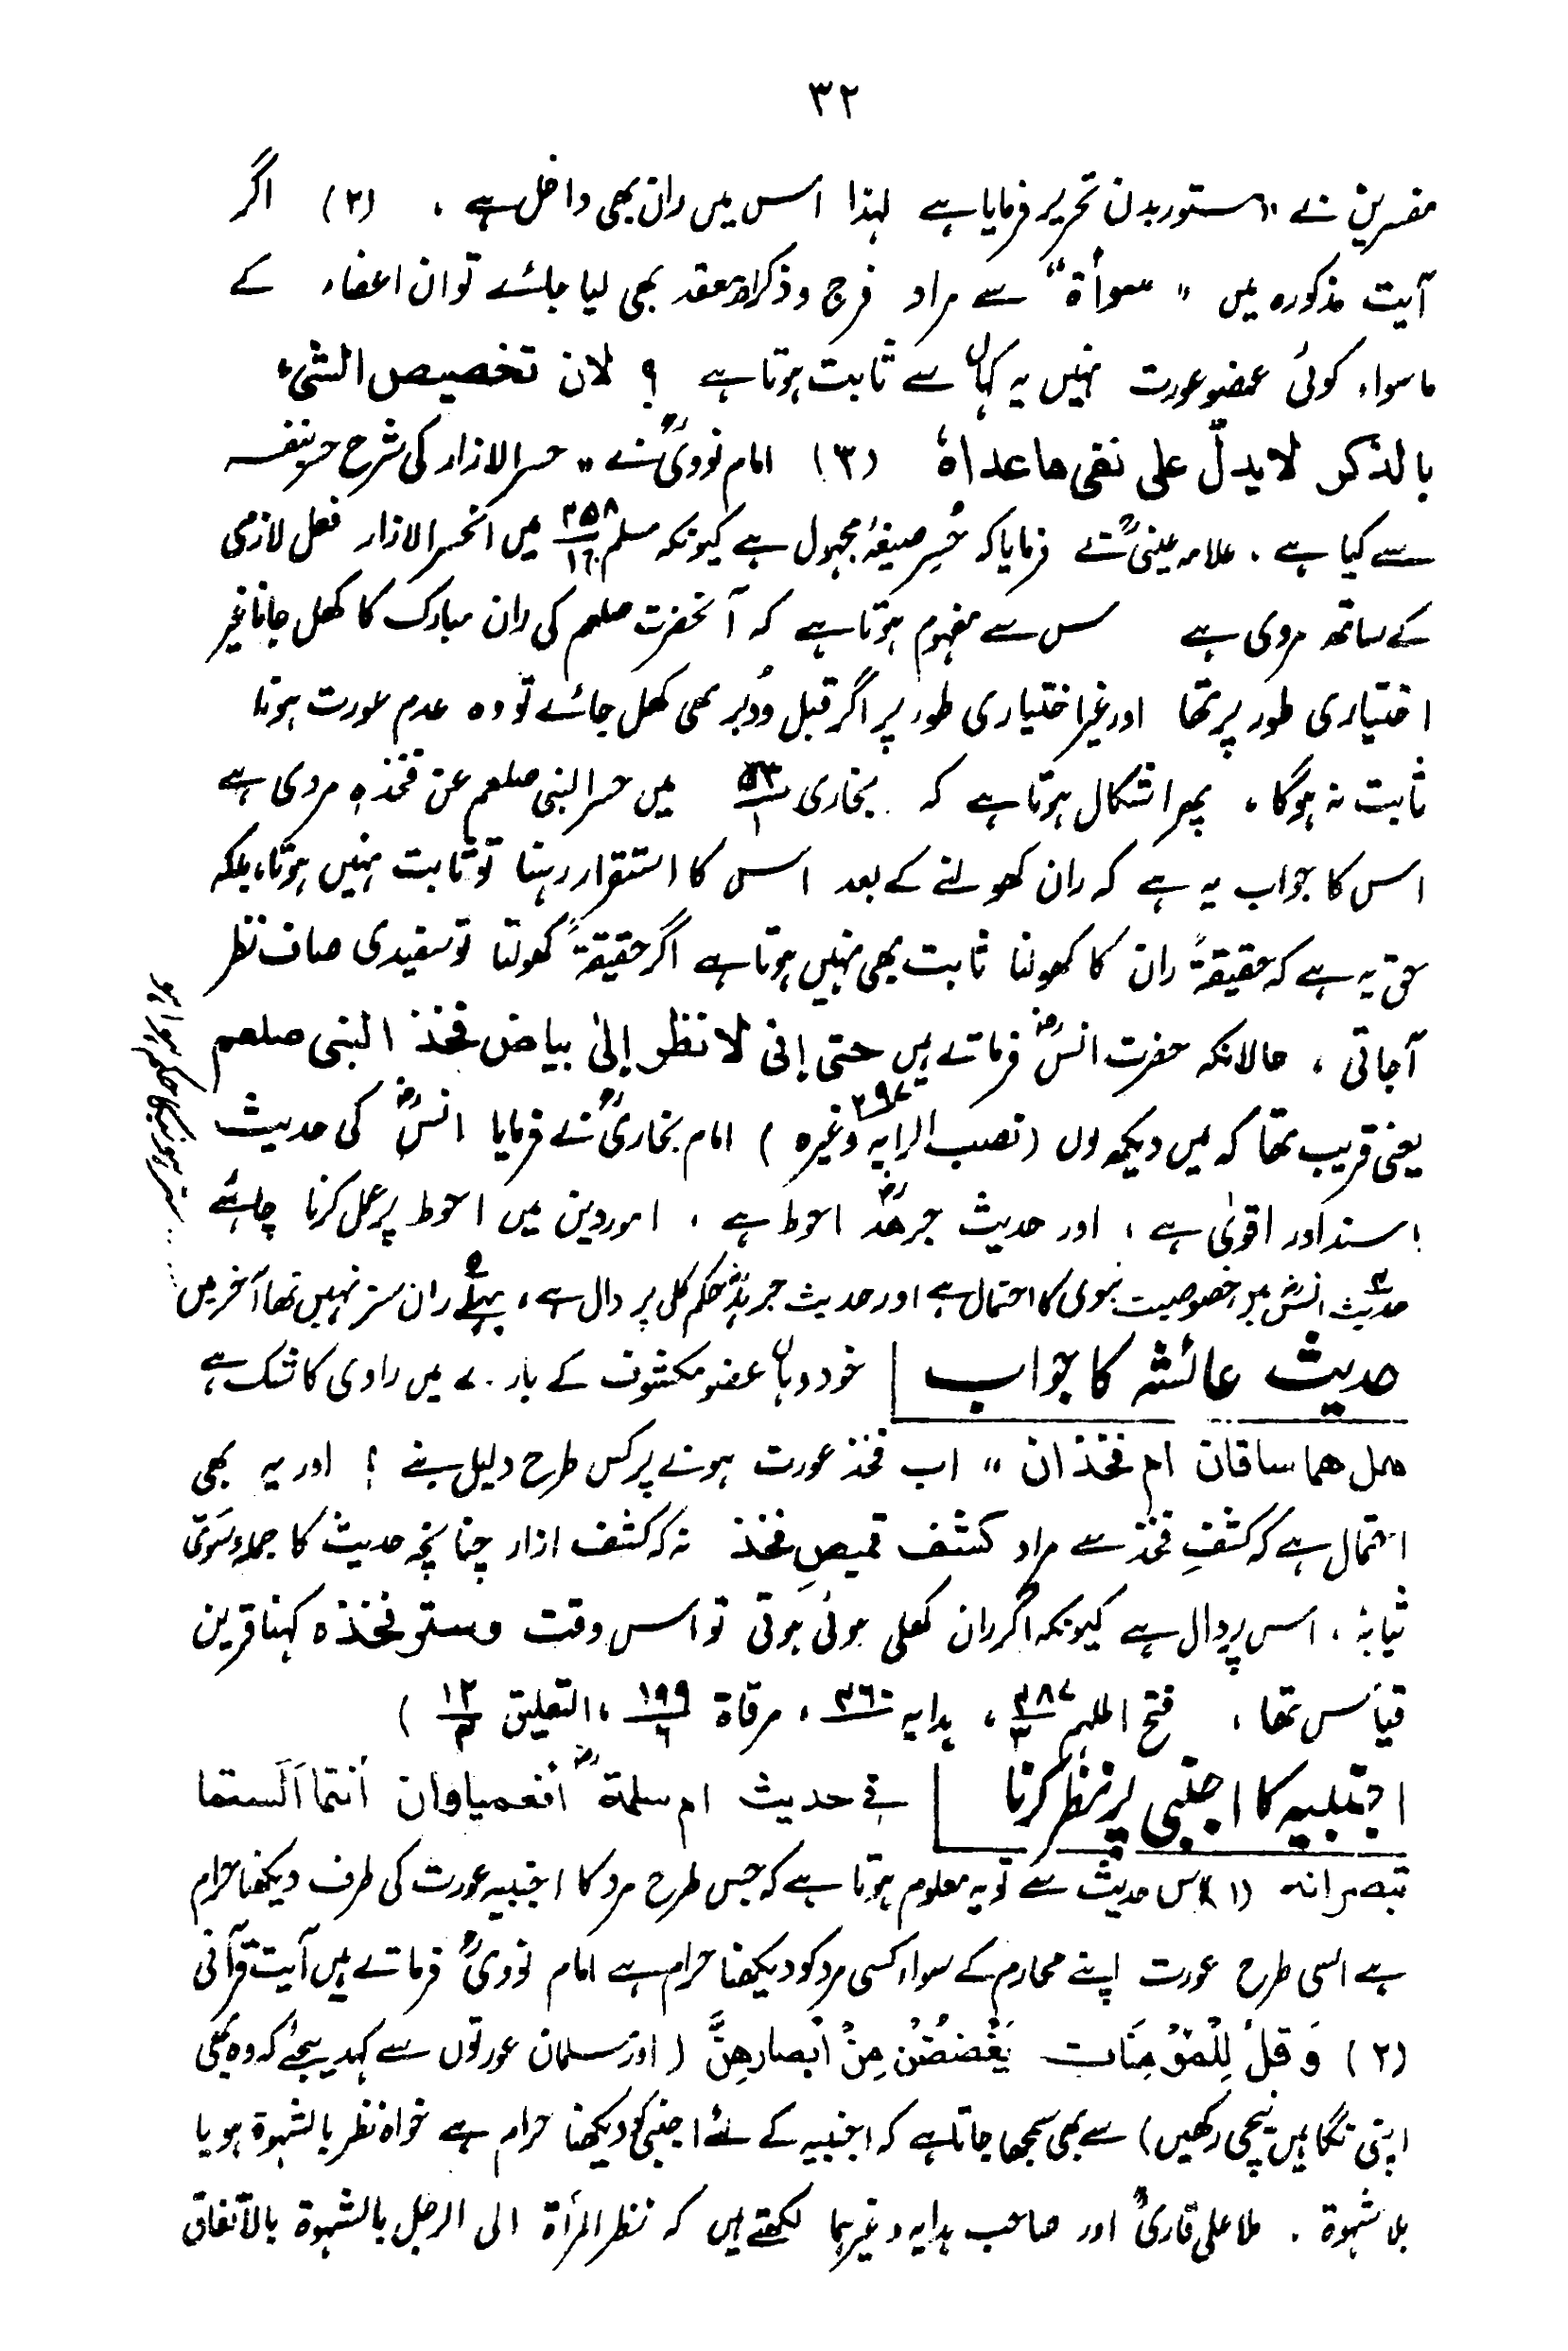 ۳۲
مفسرین نے "مستور بدن تحریر فرمایا ہے لہذا اس میں ران بھی داخل ہے ، (۲) اگر
آیت مذکورہ میں " سوأة" سے مراد فرج و ذکر اور مقعد بھی لیا جائے تو ان اعضاء کے
ماسواء کوئی عضو عورت نہیں یہ کہاں سے ثابت ہوتا ہے ؟ لان تخصیص الشیء
بالذکر لا یدلّ علی نفی ماعداہٗ (۳) امام نوویؒ نے " حسر الازار کی شرح حسر بنفسہ
سے کیا ہے ۔ علامہ عینیؒ نے فرمایا کہ حُسِر صیغۂ مجہول ہے کیونکہ مسلم ۴۵۸ میں انحسر الازار فعل لازمی
کے ساتھ مروی ہے سس سے مفہوم ہوتا ہے کہ آنحضرت صلعم کی ران مبارک کا کھل جانا غیر
اختیاری طور پر تھا اور غیر اختیاری طور پر اگر قبل ودُبر بھی کھل جائے تو وہ عدم عورت ہونا
ثابت نہ ہوگا ، پھر اشکال ہوتا ہے کہ بخاری ۵۳/۱ میں حسر النبی صلعم عن فخذہ مروی ہے
اس کا جواب یہ ہے کہ ران کھولنے کے بعد اس کا استقرار رہنا تو ثابت نہیں ہوتا، بلکہ
حق یہ ہے کہ حقیقۃً ران کا کھولنا ثابت بھی نہیں ہوتا ہے اگر حقیقۃً کھولتا تو سفیدی صاف نظر
آجاتی ، حالانکہ حضرت انسؓ فرماتے ہیں حتی إنی لانظر إلیٰ بیاض فخذ النبی صلعم
یعنی قریب تھا کہ میں دیکھ لوں (نصب الرایہ ۲۹۷ وغیرہ ) امام بخاریؒ نے فرمایا انسؓ کی حدیث
اسنداور اقویٰ ہے ، اور حدیث جرھدؓ احوط ہے ، امور دین میں احوط پر عمل کرنا چاہئے
حدیث انسؓ میں خصوصیت نبوی کا احتمال ہے اور حدیث جرہدؓ حکم کلی پر دال ہے ، پہلے ران ستر نہیں تھا آخر میں
ستر ہونیکا حکم ہوا ہو
حدیث عائشہ کا جواب | خود وہاں عضو مکشوف کے بارے میں راوی کا شک ہے
ھل ھما ساقان ام فخذان " اب فخذ عورت ہونے پر کس طرح دلیل بنے ؟ اور یہ بھی
احتمال ہے کہ کشفِ فخذ سے مراد کشف قمیصِ فخذ نہ کہ کشف ازار چنانچہ حدیث کا جملہ وسَوّی
ثیابہٗ ، اس پر دال ہے کیونکہ اگر ران کھلی ہوئی ہوتی تو اس وقت وستر فخذہ کہنا قرین
قیاس تھا ، فتح الملہم ۴۸۷/۳ ، ہدایہ ۴۶۰ ، مرقاة ۱۹۹/۶ ، التعلیق ۱۲/۴ )
اجنبیہ کا اجنبی پر نظر کرنا | فی حدیث ام سلمةؓ أفعمیاوان أنتما ألستما
تبصرانہ (۱) اس حدیث سے تو یہ معلوم ہوتا ہے کہ جس طرح مرد کا اجنبیہ عورت کی طرف دیکھنا حرام
ہے اسی طرح عورت اپنے محارم کے سواء کسی مرد کو دیکھنا حرام ہے امام نوویؒ فرماتے ہیں آیت قرآنی
(۲) وَقُلْ لِلْمُؤْمِنَاتِ یَغْضُضْنَ مِنْ أَبْصَارِهِنَّ (اور مسلمان عورتوں سے کہدیجئے کہ وہ بھی
اپنی نگاہیں نیچی رکھیں) سے بھی سمجھا جاتا ہے کہ اجنبیہ کے لئے اجنبی کو دیکھنا حرام ہے خواہ نظر بالشہوة ہو یا
بلا شہوة ۔ ملا علی قاریؒ اور صاحب ہدایہ وغیرہما لکھتے ہیں کہ نظر المرأة الی الرجل بالشہوة بالاتفاق